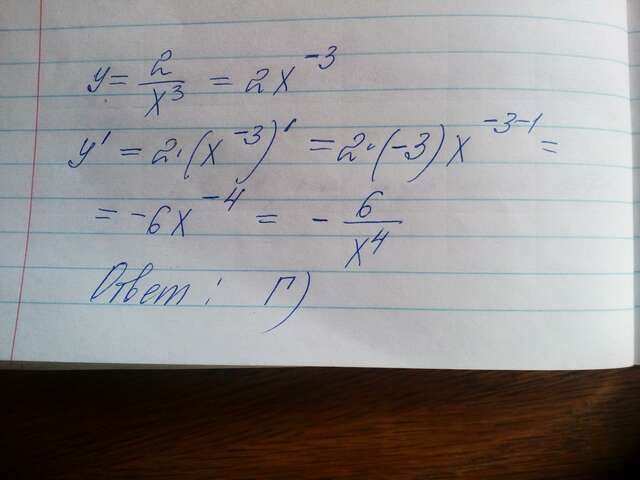 y = 2/x³ = 2x⁻³
y' = 2·(x⁻³)' = 2·(-3)x⁻³⁻¹ =
= -6x⁻⁴ = - 6/x⁴
Ответ: Г)